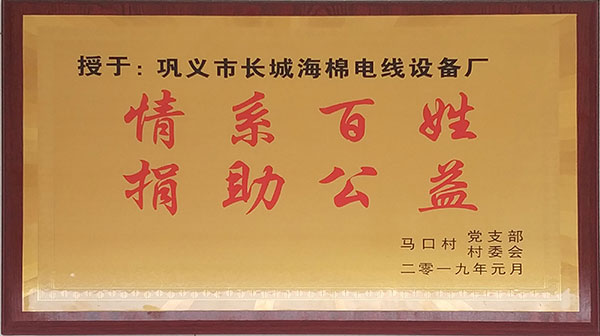 授于：巩义市长城海棉电线设备厂
情系百姓
捐助公益
马口村 党支部
村委会
二零一九年元月